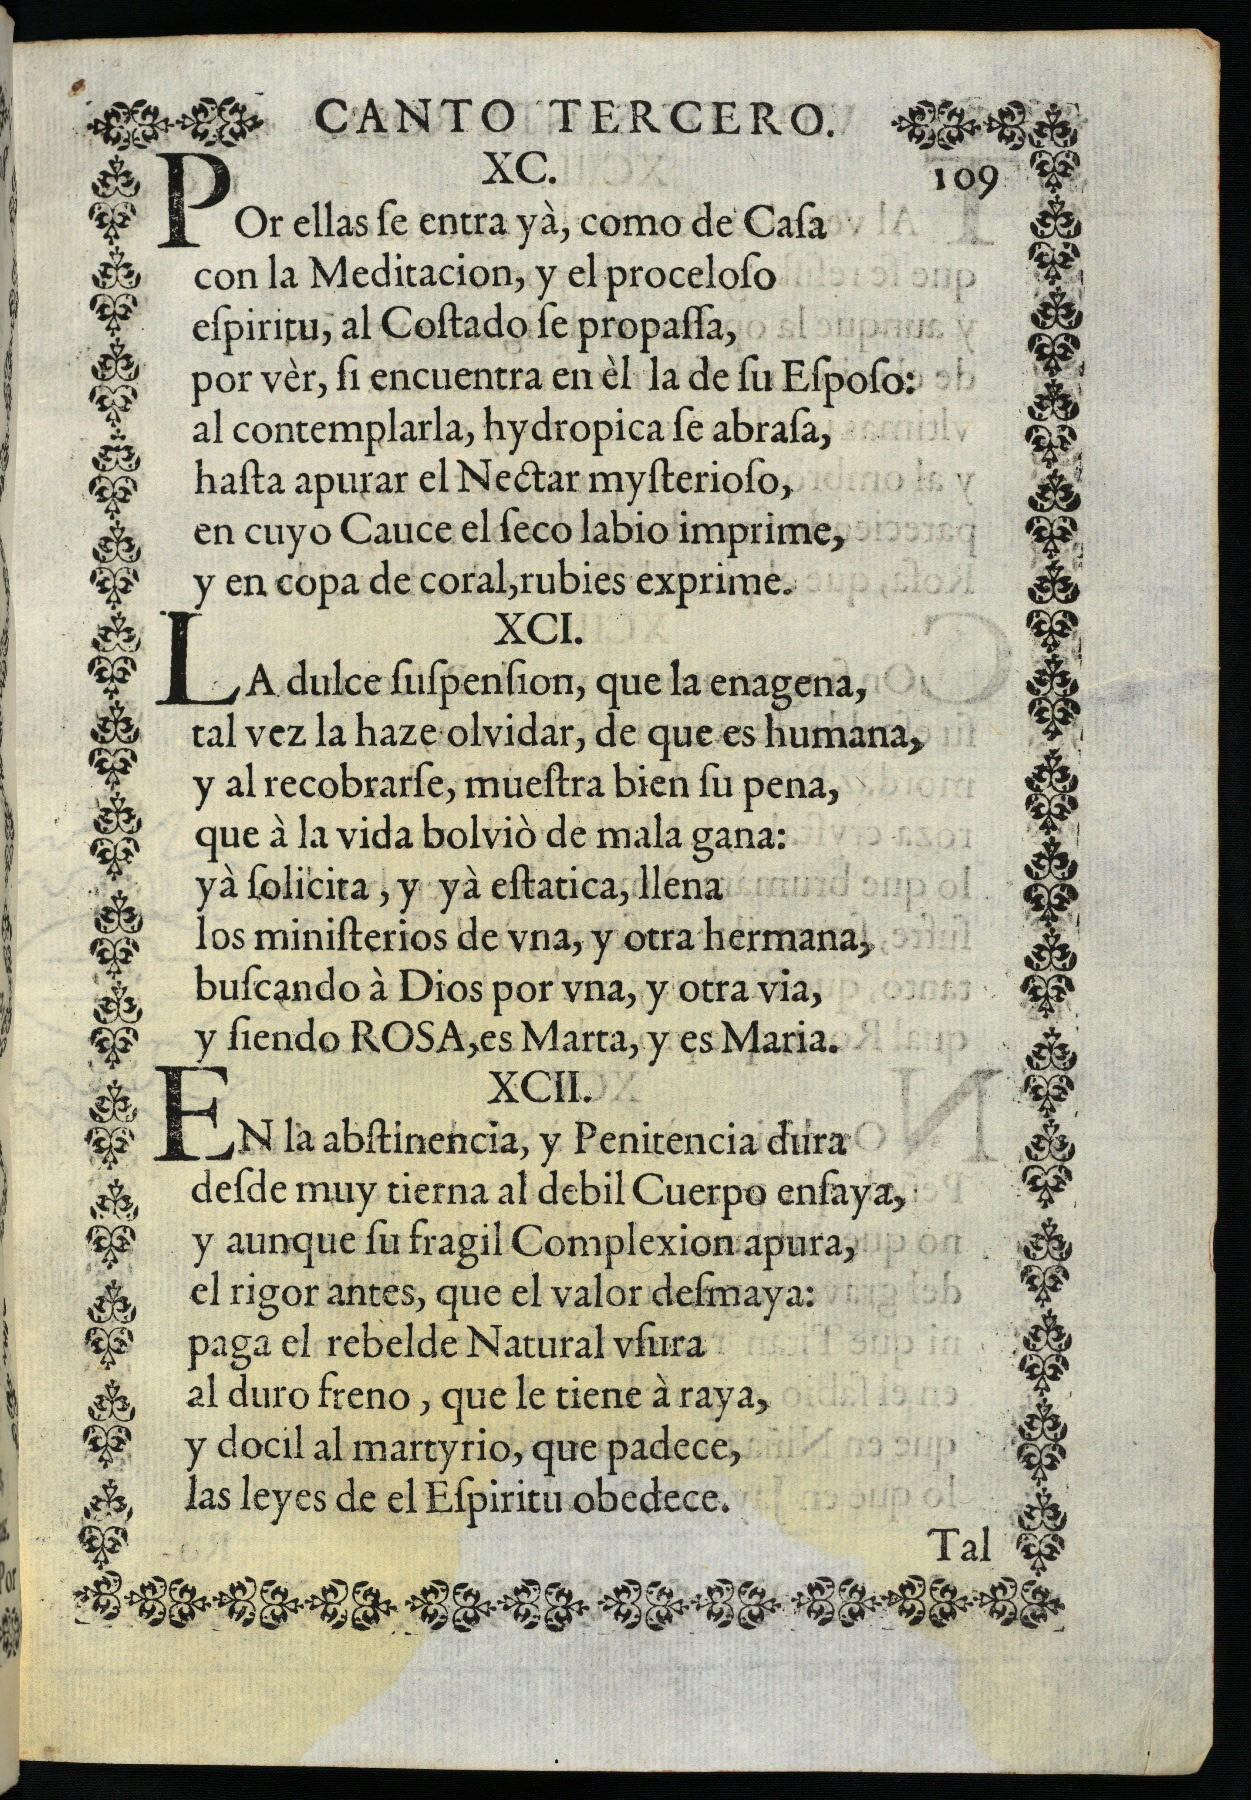 CANTO TERCERO.
XC.
109
POr ellas ſe entra yà, como de Caſa
con la Meditacion, y el proceloſo
eſpiritu, al Coſtado ſe propaſſa,
por vèr, ſi encuentra en èl la de ſu Eſpoſo:
al contemplarla, hydropica ſe abraſa,
haſta apurar el Nectar myſterioſo,
en cuyo Cauce el ſeco labio imprime,
y en copa de coral, rubies exprime.
XCI.
LA dulce ſuſpenſion, que la enagena,
tal vez la haze olvidar, de que es humana,
y al recobrarſe, mueſtra bien ſu pena,
que à la vida bolviò de mala gana:
yà ſolicita, y yà eſtatica, llena
los miniſterios de vna, y otra hermana,
buſcando à Dios por vna, y otra via,
y ſiendo ROSA, es Marta, y es Maria.
XCII.
EN la abſtinencia, y Penitencia dura
deſde muy tierna al debil Cuerpo enſaya,
y aunque ſu fragil Complexion apura,
el rigor antes, que el valor deſmaya:
paga el rebelde Natural vſura
al duro freno, que le tiene à raya,
y docil al martyrio, que padece,
las leyes de el Eſpiritu obedece.
Tal
Por